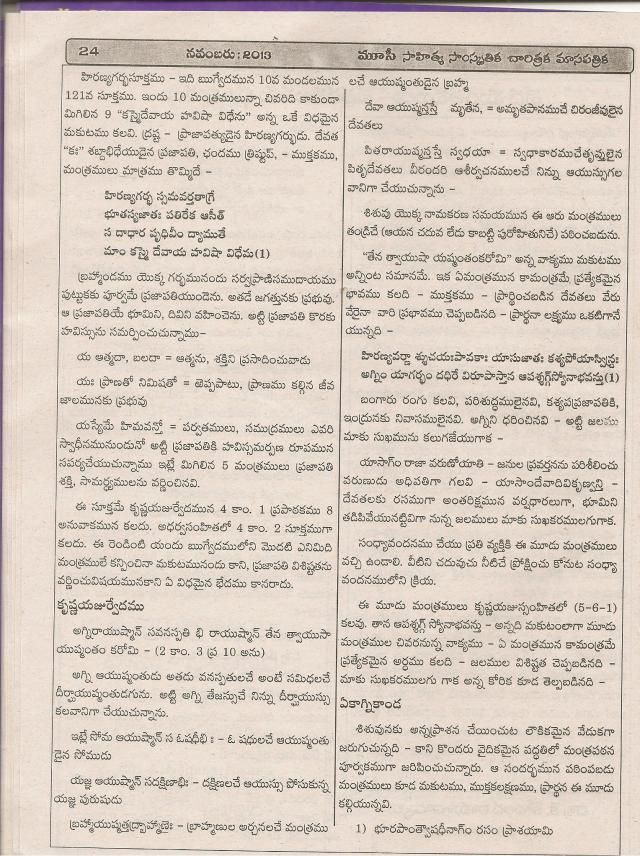 24
నవంబరు: 2013
మూసీ సాహిత్య సాంస్కృతిక చారిత్రక మాసపత్రిక
హిరణ్యగర్భసూక్తము – ఇది ఋగ్వేదమున 10వ మండలమున
121వ సూక్తము. ఇందు 10 మంత్రములున్నా చివరిది కాకుండా
మిగిలిన 9 “కస్మైదేవాయ హవిషా విధేను” అన్న ఒకే విధమైన
మకుటము కలవి. ద్రష్ట – ప్రాజాపత్యుడైన హిరణ్యగర్భుడు. దేవత
“కః” శబ్దాభిధేయుడైన ప్రజాపతి, ఛందము త్రిష్టుప్, – ముక్తకము,
మంత్రములు మాత్రము తొమ్మిదే –
హిరణ్యగర్భ స్సమవర్తతాగ్రే
భూతస్యజాతః పతిరేక ఆసీత్
స దాధార పృథివీం ద్యాముతే
మాం కస్మై దేవాయ హవిషా విధేమ(1)
బ్రహ్మాండము యొక్క గర్భమునందు సర్వప్రాణిసముదాయము
పుట్టుకకు పూర్వమే ప్రజాపతియుండెను. అతడే జగత్తునకు ప్రభువు.
ఆ ప్రజాపతియే భూమిని, దివిని వహించెను. అట్టి ప్రజాపతి కొరకు
హవిస్సును సమర్పించుచున్నాము–
య ఆత్మదా, బలదా = ఆత్మను, శక్తిని ప్రసాదించువాడు
యః ప్రాణతో నిమిషతో = ఱెప్పపాటు, ప్రాణము కల్గిన జీవ
జాలమునకు ప్రభువు
యస్యేమే హిమవన్తో = పర్వతములు, సముద్రములు ఎవరి
స్వాధీనమునుందునో అట్టి ప్రజాపతికి హవిస్సమర్పణ రూపమున
సపర్యచేయుచున్నాము ఇట్లే మిగిలిన 5 మంత్రములు ప్రజాపతి
శక్తి, సామర్థ్యములను వర్ణించినవి.
ఈ సూక్తమే కృష్ణయజుర్వేదమున 4 కాం. 1 ప్రపాఠకము 8
అనువాకమున కలదు. అధర్వసంహితలో 4 కాం. 2 సూక్తముగా
కలదు. ఈ రెండింటి యందు ఋగ్వేదములోని మొదటి ఎనిమిది
మంత్రములే కన్పించినా మకుటమునందు కాని, ప్రజాపతి విశిష్టతను
వర్ణించువిషయమునకాని ఏ విధమైన భేదము కానరాదు.
కృష్ణయజుర్వేదము
అగ్నిరాయుష్మాన్ సవనస్పతి భి రాయుష్మాన్ తేన త్వాయుసా
యుష్మంతం కరోమి – (2 కాం. 3 ప్ర 10 అను)
అగ్ని ఆయుష్మంతుడు అతడు వనస్పతులచే అంటే సమిధలచే
దీర్ఘాయుష్మంతుడగును. అట్టి అగ్ని తేజస్సుచే నిన్ను దీర్ఘాయుస్సు
కలవానిగా చేయుచున్నాను.
ఇట్లే సోమ ఆయుష్మాన్ స ఓషధీభి ః – ఓ షధులచే ఆయుష్మంతు
డైన సోముడు
యజ్ఞ ఆయుష్మాన్ సదక్షిణాభిః – దక్షిణలచే ఆయుస్సు పోసుకున్న
యజ్ఞ పురుషుడు
బ్రహ్మాయుష్మత్తద్బ్రాహ్మణైః – బ్రాహ్మణుల అర్చనలచే మంత్రము
లచే ఆయుష్మంతుడైన బ్రహ్మ
దేవా ఆయుష్మన్తస్తే మృతేన, = అమృతపానముచే చిరంజీవులైన
దేవతలు
పితరాయుష్మన్తస్తే స్వధయా = స్వధాకారముచేతృవులైన
పితృదేవతలు వీరందరి ఆశీర్వచనములచే నిన్ను ఆయుస్సుగల
వానిగా చేయుచున్నాను –
శిశువు యొక్క నామకరణ సమయమున ఈ ఆరు మంత్రములు
తండ్రిచే (ఆయన చదువ లేడు కాబట్టి పురోహితునిచే) పఠించబడును.
“తేన త్వాయుషా యష్మంతంకరోమి” అన్న వాక్యము మకుటము
అన్నింట సమానమే. ఇక ఏమంత్రమున కామంత్రమే ప్రత్యేకమైన
భావము కలది – ముక్తకము – ప్రార్థించబడిన దేవతలు వేరు
వేరైనా వారి ప్రభావము చెప్పబడినది – ప్రార్థనా లక్ష్యము ఒకటిగానే
యున్నది –
హిరణ్యవర్ణా శ్శుచయఃపావకాః యాసుజాతః కశ్యపోయాస్విన్ద్రః
అగ్నిం యాగర్భం దధిరే విరూపాస్తాన ఆపశ్శగ్‌స్యోనాభవన్తు(1)
బంగారు రంగు కలవి, పరిశుద్ధములైనవి, కశ్యపప్రజాపతికి,
ఇంద్రునకు నివాసములైనవి. అగ్నిని ధరించినవి – అట్టి జలము
మాకు సుఖమును కలుగజేయుగాక –
యాసాగ్ం రాజా వరుణోయాతి – జనుల ప్రవర్తనను పరిశీలించు
వరుణుడు అధిపతిగా గలవి – యాసాందేవాదివికృణ్వన్తి –
దేవతలకు రసముగా అంతరిక్షమున వర్షధారలుగా, భూమిని
తడిపివేయునట్టివిగా నున్న జలములు మాకు సుఖకరములగుగాక.
సంధ్యావందనము చేయు ప్రతి వ్యక్తికి ఈ మూడు మంత్రములు
వచ్చి ఉండాలి. వీటిని చదువుచు నీటిచే ప్రోక్షించు కోనుట సంధ్యా
వందనములోని క్రియ.
ఈ మూడు మంత్రములు కృష్ణయజుస్సంహితలో (5-6-1)
కలవు. తాన ఆపశ్శగ్గ్ స్యోనాభవన్తు – అన్నది మకుటంలాగా మూడు
మంత్రముల చివరనున్న వాక్యము – ఏ మంత్రమున కామంత్రమే
ప్రత్యేకమైన అర్థము కలది – జలముల విశిష్టత చెప్పబడినది –
మాకు సుఖకరములుగు గాక అన్న కోరిక కూడ తెల్పబడినది –
ఏకాగ్నికాండ
శిశువునకు అన్నప్రాశన చేయించుట లౌకికమైన వేడుకగా
జరుగుచున్నది – కాని కొందరు వైదికమైన పద్ధతిలో మంత్రపఠన
పూర్వకముగా జరిపించుచున్నారు. ఆ సందర్భమున పఠింపబడు
మంత్రములు కూడ మకుటము, ముక్తకలక్షణము, ప్రార్థన ఈ మూడు
కల్గియున్నవి.
1) భూరపాంత్వౌషధీనాగ్ం రసం ప్రాశయామి